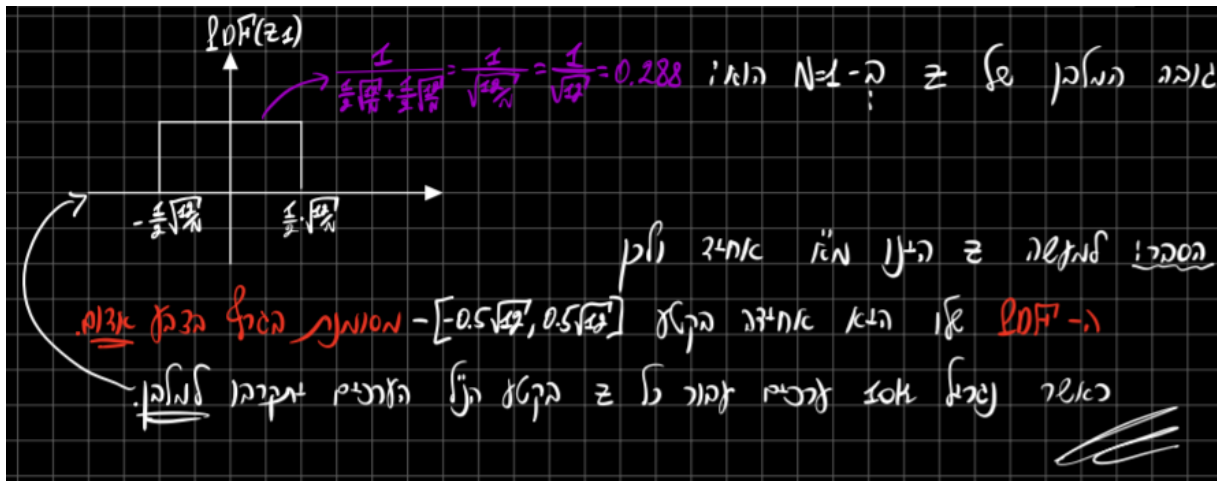 PDF(z1)
גובה המלבן של z ב-N=1 הוא: \frac{1}{\frac{1}{2}\sqrt{\frac{12}{N}}+\frac{1}{2}\sqrt{\frac{12}{N}}}=\frac{1}{\sqrt{\frac{12}{N}}}=\frac{1}{\sqrt{12}}=0.288
-\frac{1}{2}\sqrt{\frac{12}{N}} \frac{1}{2}\cdot\sqrt{\frac{12}{N}}
הסבר: למעשה z הינו מ"א אחיד ולכן
ה-PDF שלו היא אחידה בקטע [-0.5\sqrt{12}, 0.5\sqrt{12}] - מסומנת בגרף בצבע אדום.
כאשר נגריל 10k ערכים עבור כל z בקטע הנ"ל הערכים יתקרבו למלבן.